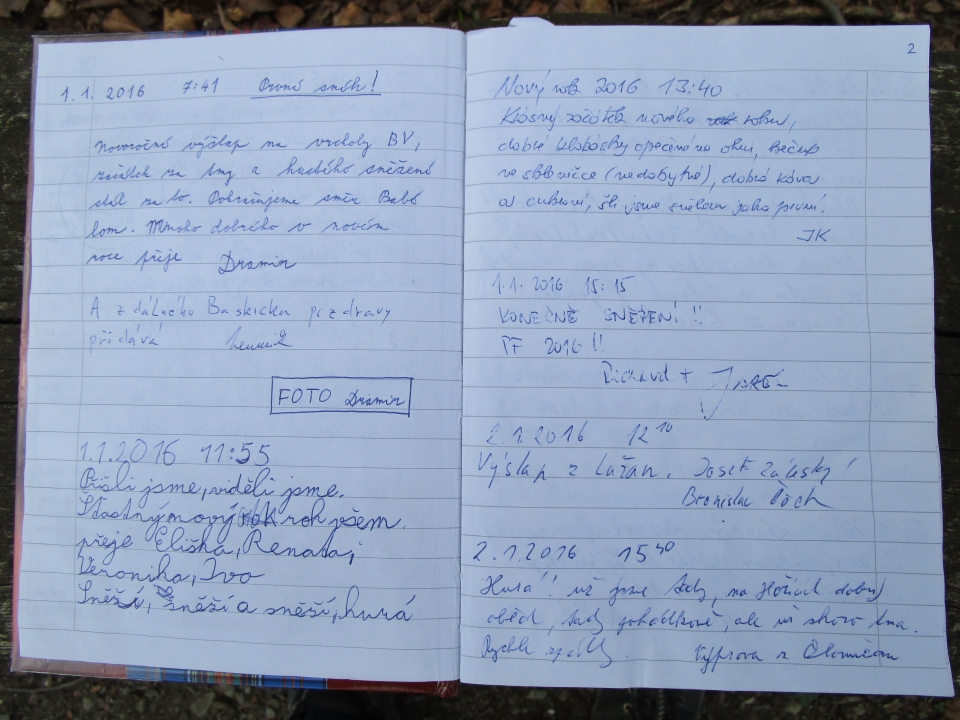 1.1. 2016 7:41 První sníh!
Novoroční výšlap na vrcholy BV,
začátek za tmy a hustého sněžení
stál za to. Pokračujeme směr Babí
lom. Mnoho dobrého v novém
roce přeje Dramin
A z dálného Baskicka pozdravy
přidává
FOTO Dramin
1.1.2016 11:55
Přišli jsme, viděli jsme.
Šťastný nový rok všem
přeje Eliška, Renata,
Veronika, Ivo
Sněží, sněží a sněží, hurá
2
Nový rok 2016 13:40
Krásný začátek nového roku,
dobré klobásky opečené na ohni,
ve skleničce (nedobytné), dobrá káva
a cukroví, šli jsme sněhem jako první.
JK
1.1. 2016 15:15
KONEČNĚ SNĚŽENÍ !!
PF 2016 !!
Richard +
2.1.2016 12 10
Výšlap z Lažan. Josef Záleský
Bronislav
2.1.2016 15 40
Hurá! už jsme tady, na Hořicích dobrý
oběd, tady pohádkově, ale už skoro tma.
Rychle zpátky. Výprava z Olomouce